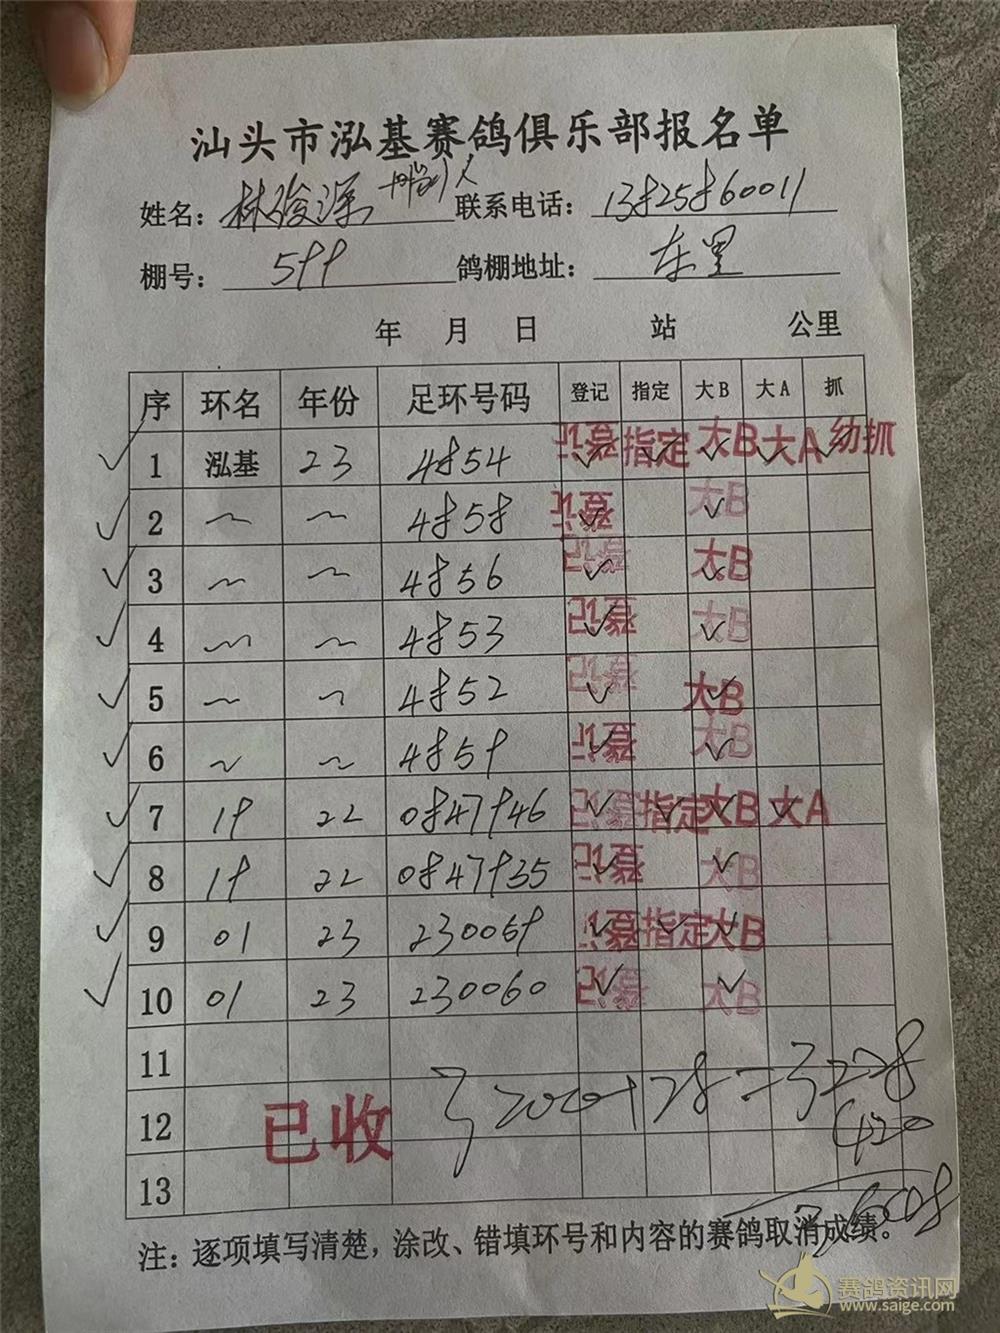 汕头市泓基赛鸽俱乐部报名单
姓名：林俊深 联系电话：13825860011
棚号：599 鸽棚地址：东里
年 月 日 站 公里
序 环名 年份 足环号码 登记 指定 大B 大A 抓
✓ 1 泓基 23 4854 ✓ 指定 ✓ 大B ✓ 大A ✓ 幼抓 ✓
✓ 2 ~ ~ 4858 ✓ 大B ✓
✓ 3 ~ ~ 4856 ✓ 大B ✓
✓ 4 ~ ~ 4853 ✓ 大B ✓
✓ 5 ~ ~ 4852 ✓ 大B ✓
✓ 6 ~ ~ 4859 ✓ 大B ✓
✓ 7 19 22 0847946 ✓ 指定 ✓ 大B ✓ 大A ✓
✓ 8 19 22 0847935 ✓ 大B ✓
✓ 9 01 23 230069 ✓ 指定 ✓ 大B ✓
✓ 10 01 23 230060 ✓ 大B ✓
11
12 已收 3200+28=3228
420
13
注：逐项填写清楚，涂改、错填环号和内容的赛鸽取消成绩。
赛鸽资讯网
www.saige.com